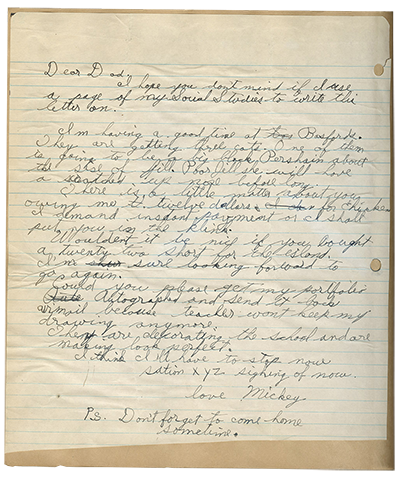 Dear Dad,
I hope you dont mind if I use
a page of my Social Studies to write this
letter on.
I'm having a good time at Basfords.
They are getting three cats. One of them
is going to be a big black Pershain about
the size of Jill. Poor Jill she will have
a scratched up nose before long.
There is a little matter about you
owing me twelve dollars.
I demand instant payment or I shall
put you in the klink.
Wouldent it be nice if you bought
a twenty two short for the island.
I'm sure looking forward to
go again.
Could you please get my portfolio
autographed and send it back
airmail because teacher wont keep my
drawing anymore.
They are decorating the school and are
making look perfect.
I think I'll have to stop now
sation XYZ signing of now.
love Mickey
P.S. Don't forget to come home
sometime.